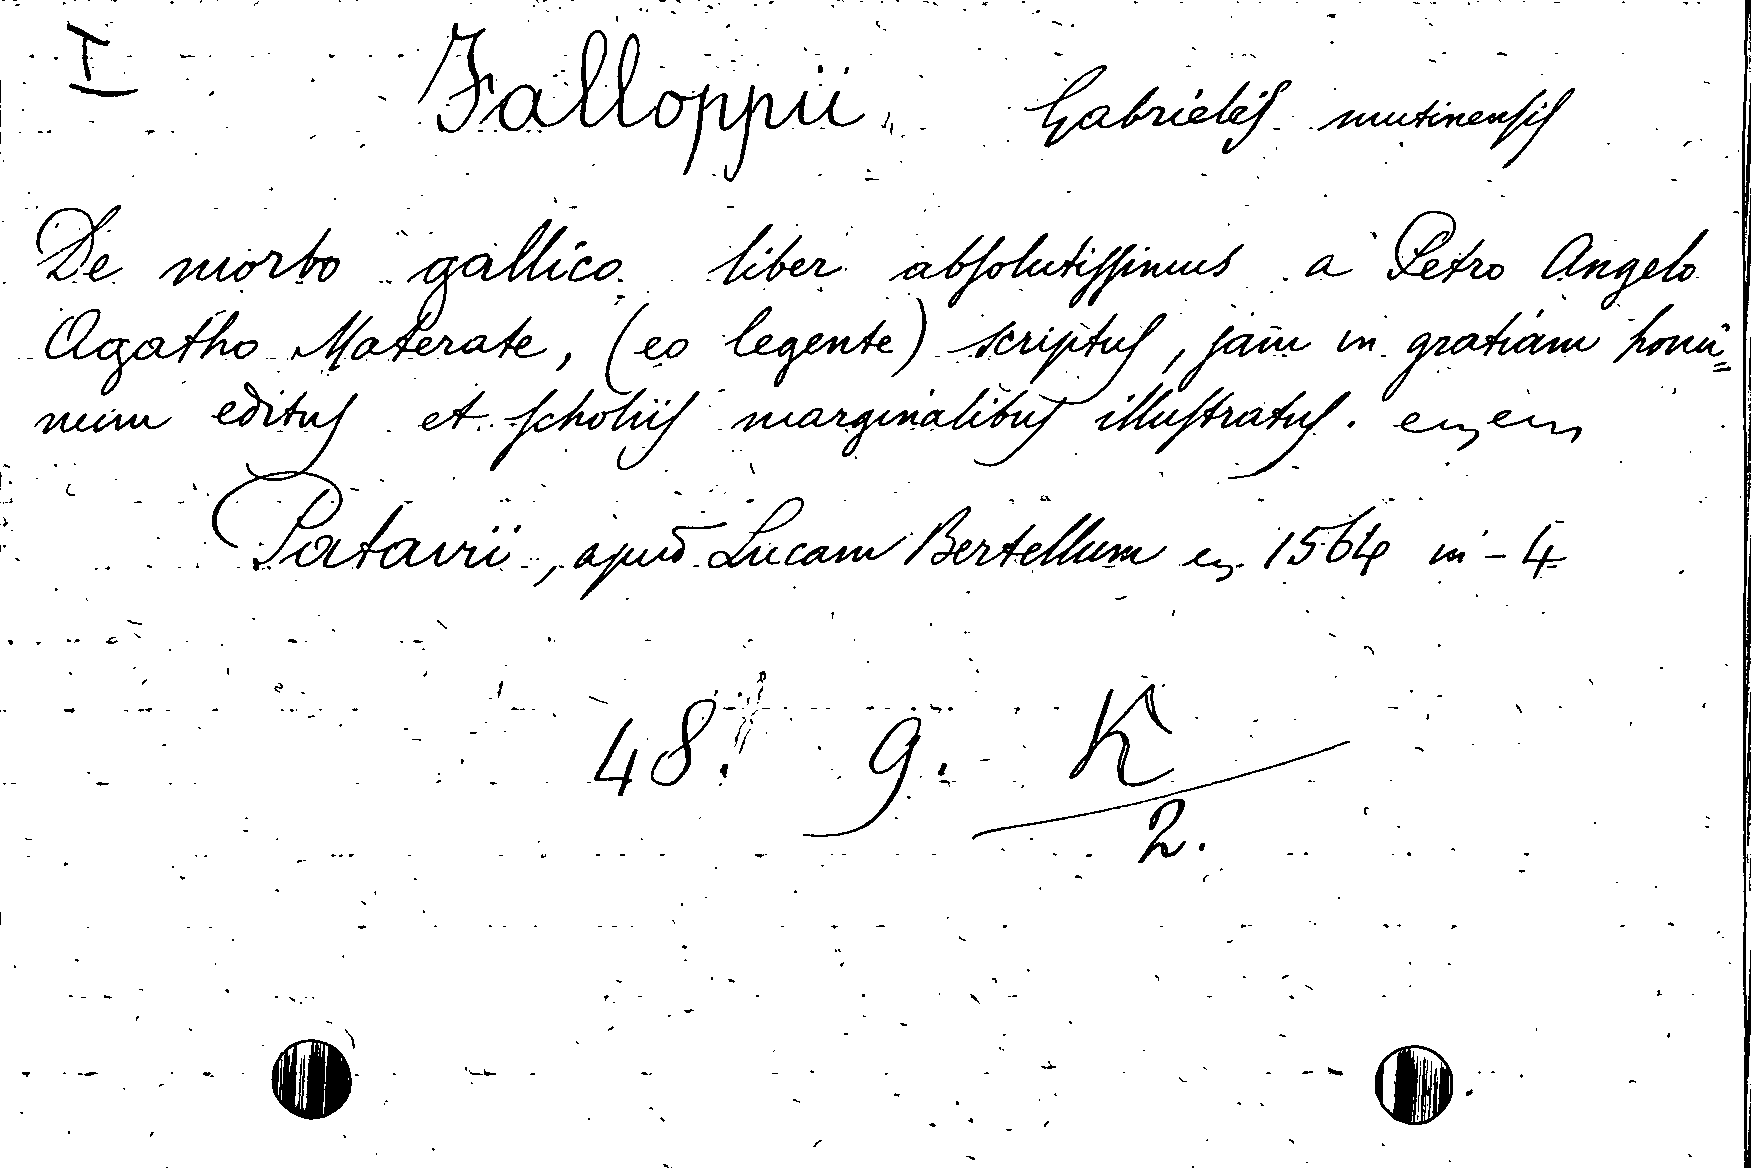 I Falloppii Gabrielis mutinensis
De morbo gallico liber absolutissimus a Petro Angelo
Agatho Materate, (eo legente) scriptus, jam in gratiam homi=
num editus et scholiis marginalibus illustratus.
Patavii, apud Lucam Bertellum 1564 in-4
48. 9. K
2.